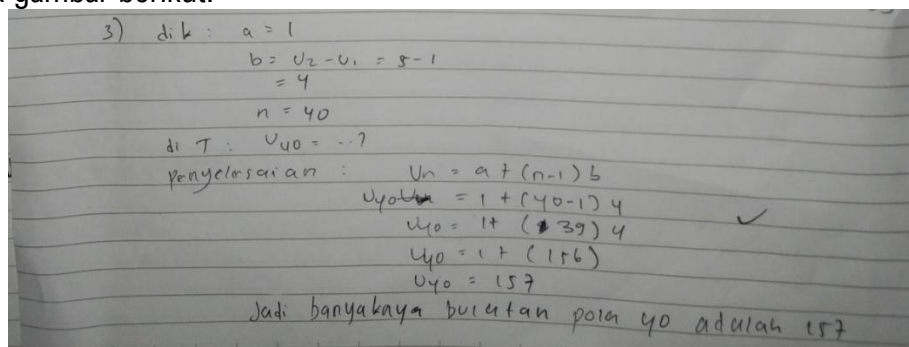 gambar berikut.
3) dik : a = 1
b = U2 - U1 = 5 - 1
= 4
n = 40
di T : U40 = ...?
penyelesaian : Un = a + (n-1) b
U40 = 1 + (40-1) 4
U40 = 1 + (39) 4
U40 = 1 + (156)
U40 = 157
Jadi banyaknya bulatan pola 40 adalah 157